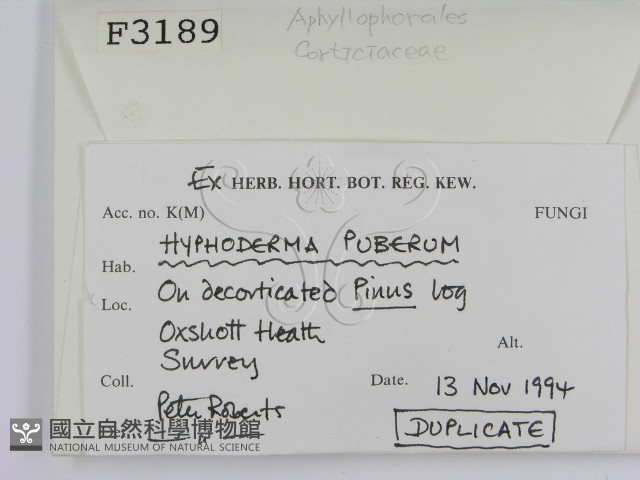 F3189
Aphyllophorales
Corticiaceae
Ex HERB. HORT. BOT. REG. KEW.
Acc. no. K(M) FUNGI
HYPHODERMA PUBERUM
Hab.
On decorticated Pinus log
Loc.
Oxshott Heath
Surrey
Alt.
Coll.
Peter Roberts
Date. 13 Nov 1994
DUPLICATE
國立自然科學博物館
NATIONAL MUSEUM OF NATURAL SCIENCE